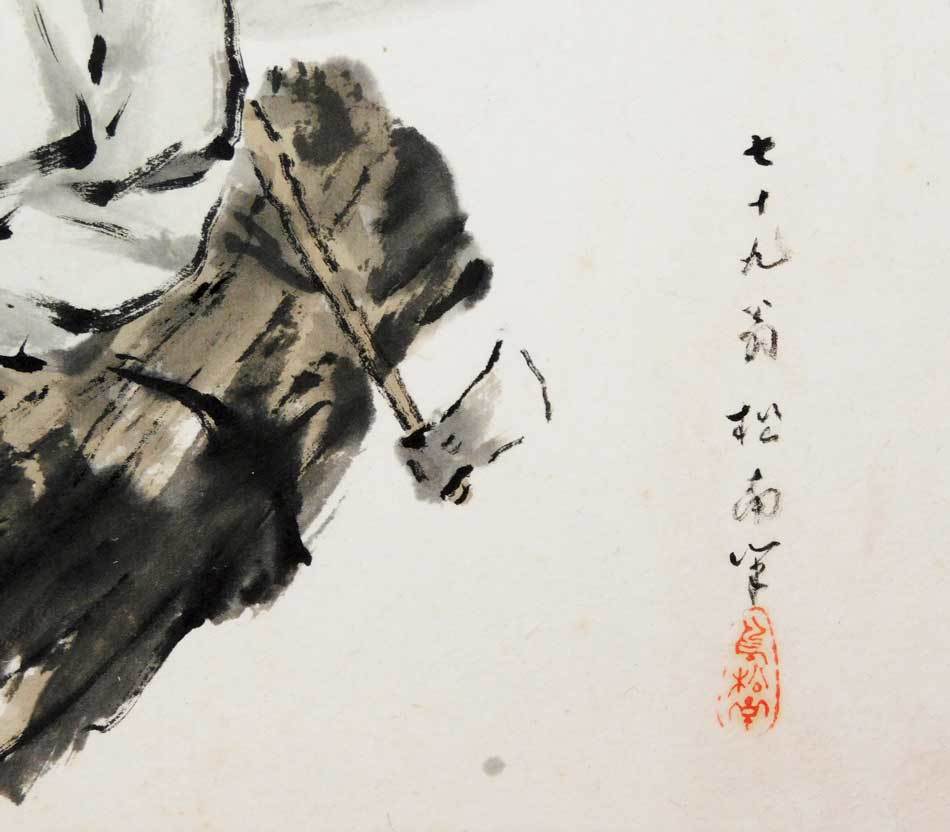 七十九翁松南筆
松